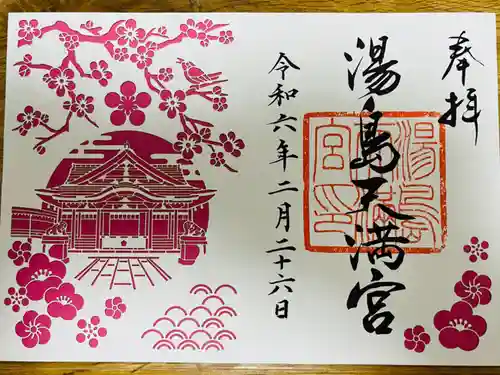 奉拝
湯島天満宮
令和六年二月二十六日
湯島
宮印